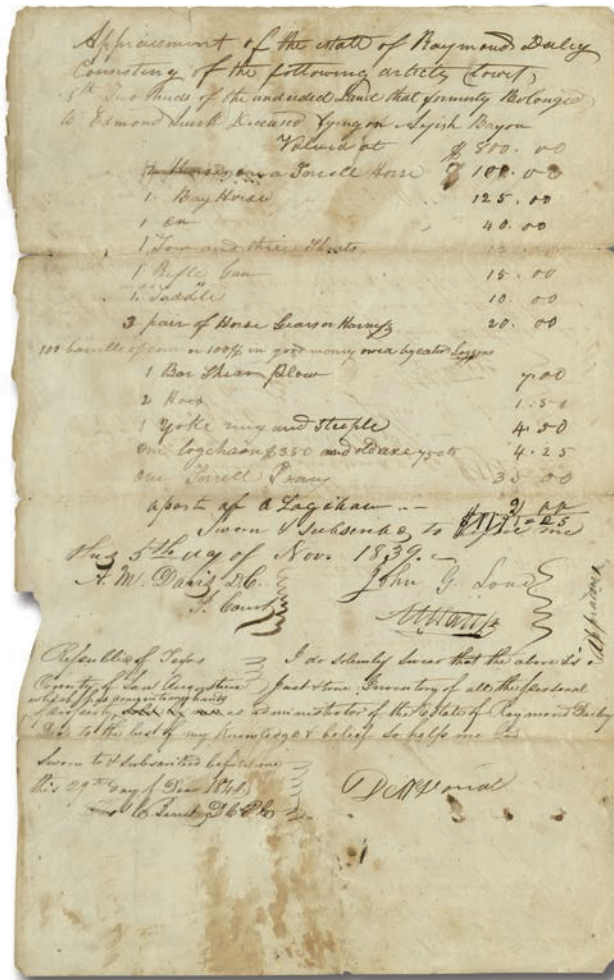 Appraisment of the estate of Raymond Daley
Consisting of the following articles (towit)
of the undivided Land that formerly Belonged
to Edmond Deceased Lying on Ayish Bayou
Valued at $800.00
a Sorrell Horse $ 100.00
1 Bay Horse 125.00
1 Ox 40.00
1 Sow and three Shoats
1 Rifle Gun 15.00
1 Saddle 10.00
3 pair of Horse Gears or Harness 20.00
100 barrells of corn or 100$ in good money
1 Bar Shear Plow 7.00
2 Hoes 1.50
1 Yoke ring and Steeple 4.50
one logchain $3.50 and old axe 75 cts 4.25
one Sorrell 35.00
a part of a Logchain 2.00
Sworn & subscribed to before me
this 5th day of Nov. 1839
A. W. Davis D.C. John G. Love
Appraisers
Republic of Texas I do solemnly swear that the above is a
County of San Augustine Just & true Inventory of all the personal
property as administrator of the Estate of Raymond Dailey
to the best of my knowledge & belief So helps me God
Sworn to & subscribed before me
this 29th Day of